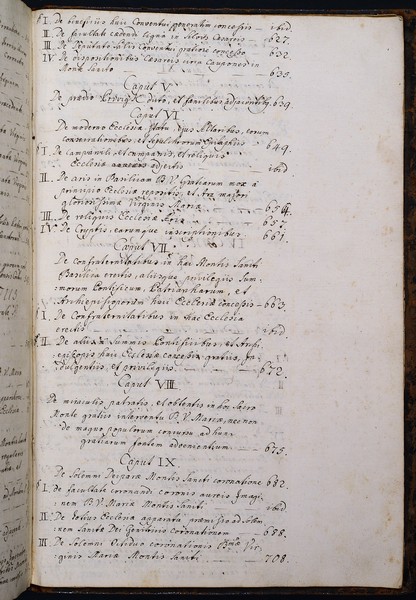 § I. De beneficiis huic Conventui generatim concessis — ibid.
II. De facultate cædendi ligna in Silvis Cæsareis — 627.
III. De Deputato salis Conventui gratiose concesso 632
IV. De dispositionibus Cæsareis circa Caupones in
Monte Sancto — 635.
Caput V.
De prædio dicto, et familibus adjacentibus 639.
Caput VI
De moderno Ecclesiæ statu, ejus Altaribus, eorum
consecrationibus, et Sepulchrorum — 649.
§ I. De campanili et Campanis, et reliquis
Ecclesiæ annexis adjectis — ibid
II. De aris in Basilicam B. V. Gratiarum mox a
principio Ecclesiæ repositis, et Ara majori
gloriosissimæ Virginis Mariæ — 654.
III. De reliquiis Ecclesiæ — 657.
IV. De Cryptis, earumque inscriptionibus — 661.
Caput VII.
De confraternitatibus in hac Montis Sancti
Basilica erectis, aliisque privilegiis Sum-
morum Pontificum, Patriarcharum, et
Archiepiscoporum huic Ecclesiæ concessis — 663.
§ I. De Confraternitatibus in hac Ecclesia
erectis — ibid.
§ II. De aliis a Summis Pontificibus, et Archi-
episcopis huic Ecclesiæ concessis gratiis, In-
dulgentiis, et privilegiis — 672.
Caput VIII.
De miraculis patratis, et obtentis in hoc Sacro
Monte gratiis interventu B. V. Mariæ, nec non
de magno populorum concursu ad hunc
gratiarum fontem advenientium — 675.
Caput IX.
De Solemni Deiparæ Montis Sancti coronatione 682.
§ I. De facultate coronandi coronis aureis Imagi-
nem B. V. Mariæ Montis Sancti — ibid
II. De totius Ecclesiæ apparatu præmisso ad solem-
nem Sanctæ Dei Genitricis coronationem — 688.
III. De Solemni Octiduo coronationis Bmæ Vir-
ginis Mariæ Montis Sancti — 708.